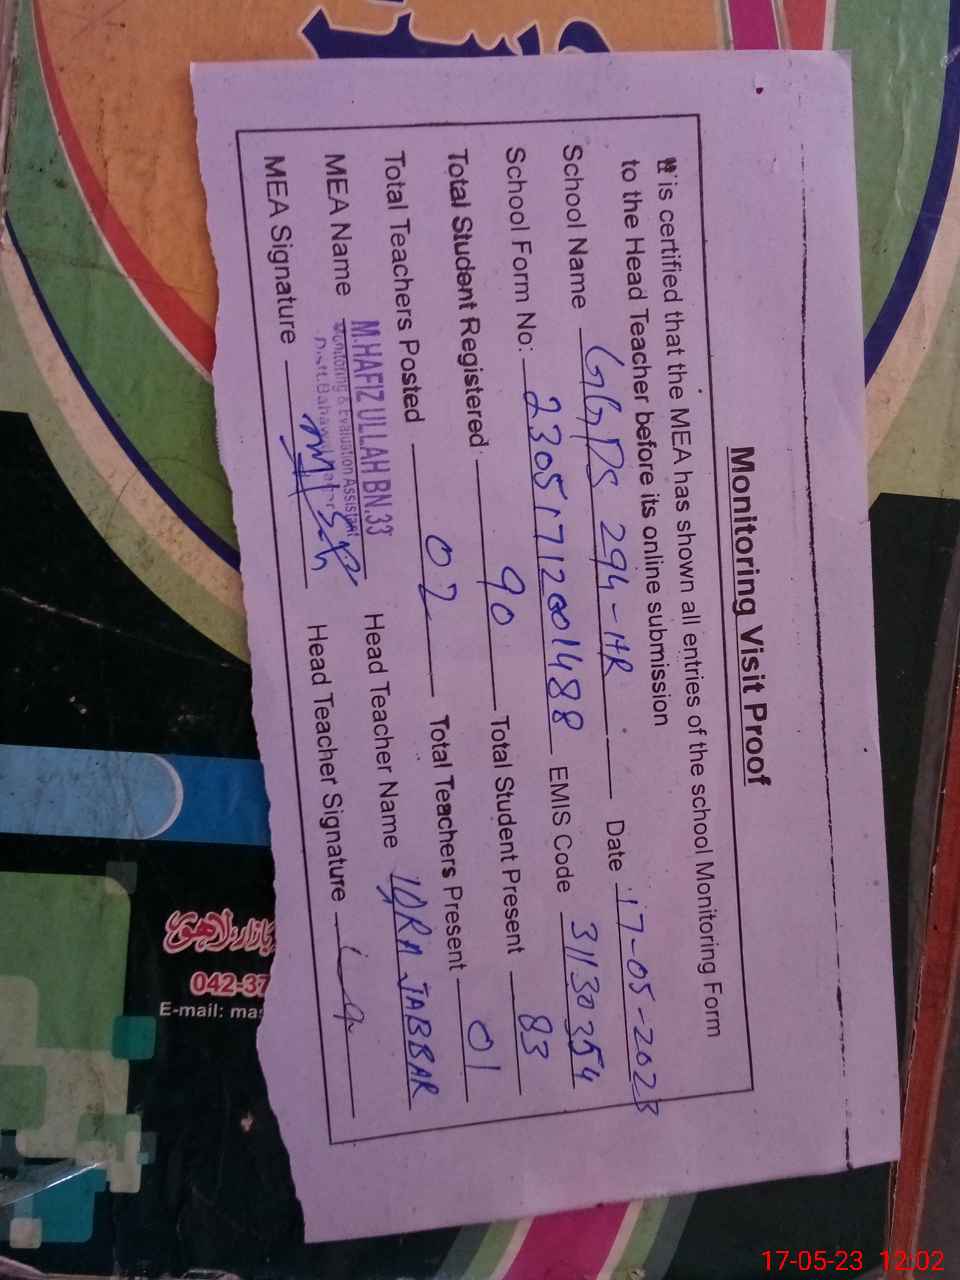 Monitoring Visit Proof
It is certified that the MEA has shown all entries of the school Monitoring Form
to the Head Teacher before its online submission
School Name GGPS 294-HR Date 17-05-2023
School Form No: 23051712001488 EMIS Code 31130354
Total Student Registered 90 Total Student Present 83
Total Teachers Posted 02 Total Teachers Present 01
MEA Name M.HAFIZ ULLAH BN.33 Head Teacher Name IQRA JABBAR
Monitoring & Evaluation Assistant
Distt. Bahawalnagar
MEA Signature Head Teacher Signature
بازار، لاہور
042-37
E-mail: mas
17-05-23 12:02